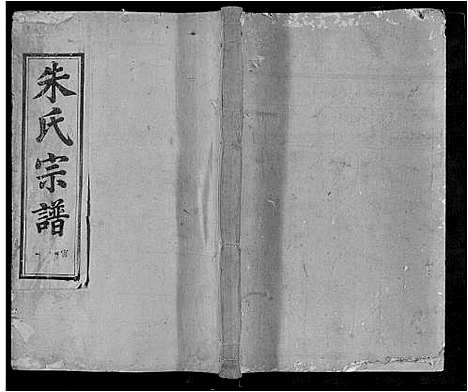 朱氏宗譜